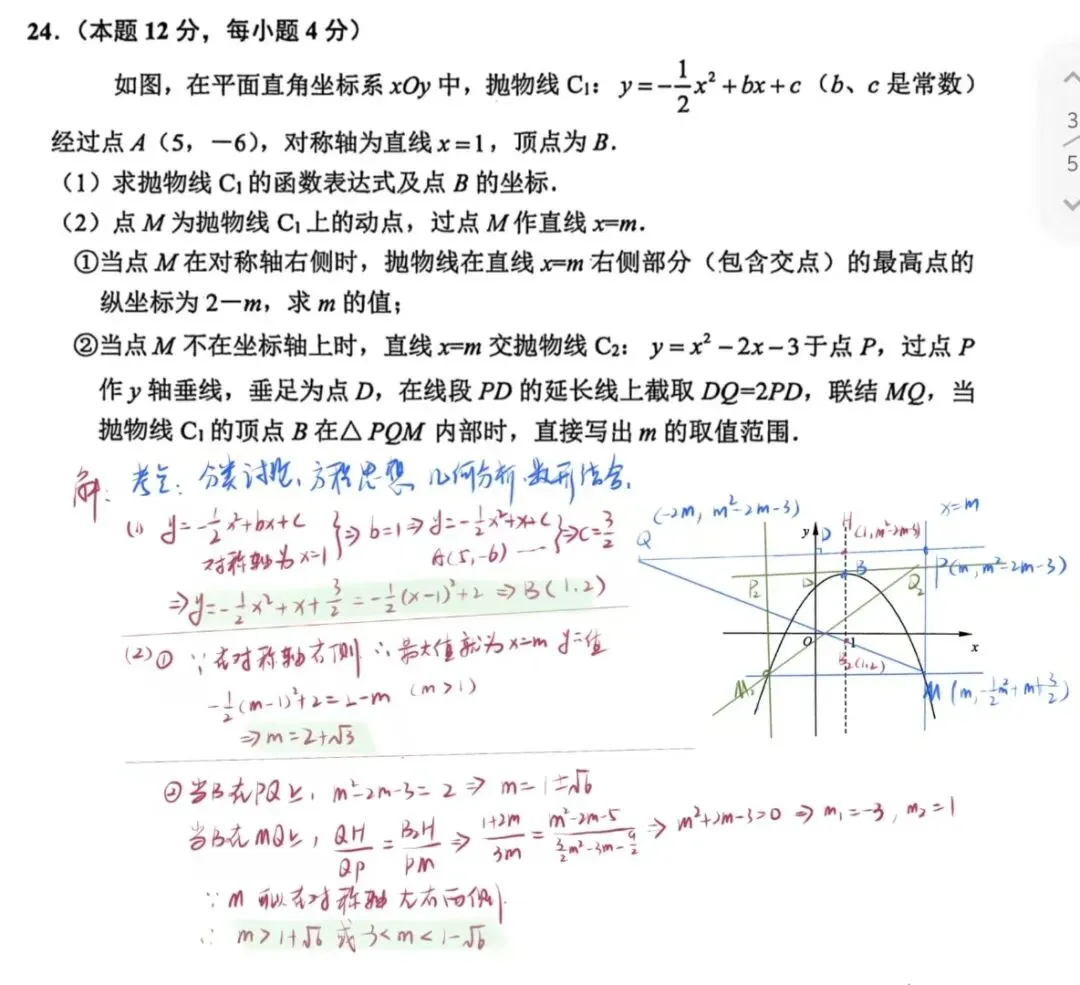 24.（本题 12 分，每小题 4 分）
如图，在平面直角坐标系 xOy 中，抛物线 C₁：y=-1/2x²+bx+c（b、c 是常数）
经过点 A（5，-6），对称轴为直线 x=1，顶点为 B.
（1）求抛物线 C₁ 的函数表达式及点 B 的坐标.
（2）点 M 为抛物线 C₁ 上的动点，过点 M 作直线 x=m.
①当点 M 在对称轴右侧时，抛物线在直线 x=m 右侧部分（包含交点）的最高点的
纵坐标为 2-m，求 m 的值；
②当点 M 不在坐标轴上时，直线 x=m 交抛物线 C₂：y=x²-2x-3 于点 P，过点 P
作 y 轴垂线，垂足为点 D，在线段 PD 的延长线上截取 DQ=2PD，联结 MQ，当
抛物线 C₁ 的顶点 B 在△PQM 内部时，直接写出 m 的取值范围.
3
5
解：考点：分类讨论、方程思想、几何分析、数形结合.
(1) y=-1/2x²+bx+c
对称轴为x=1
}⇒b=1⇒y=-1/2x²+x+c
A(5,-6)
}⇒c=3/2
⇒y=-1/2x²+x+3/2=-1/2(x-1)²+2⇒B(1,2)
(2)① ∵在对称轴右侧 ∴最大值就为x=m y=值
-1/2(m-1)²+2=2-m (m>1)
⇒m=2+√3
②当B在PQ上，m²-2m-3=2⇒m=1±√6
当B在MQ上，QH/QP=B₂H/PM⇒(1+2m)/3m=(m²-2m-5)/(3/2m²-3m-9/2)⇒m²+2m-3=0⇒m₁=-3，m₂=1
∵M可以在对称轴左右两侧
∴m>1+√6或-3<m<1-√6
(-2m, m²-2m-3)
x=m
Q
y
D
H
(1,m²-2m-3)
P(m,m²-2m-3)
P₂
D
B
Q₂
O
1
x
B₂(1,2)
M₂
M(m,-1/2m²+m+3/2)